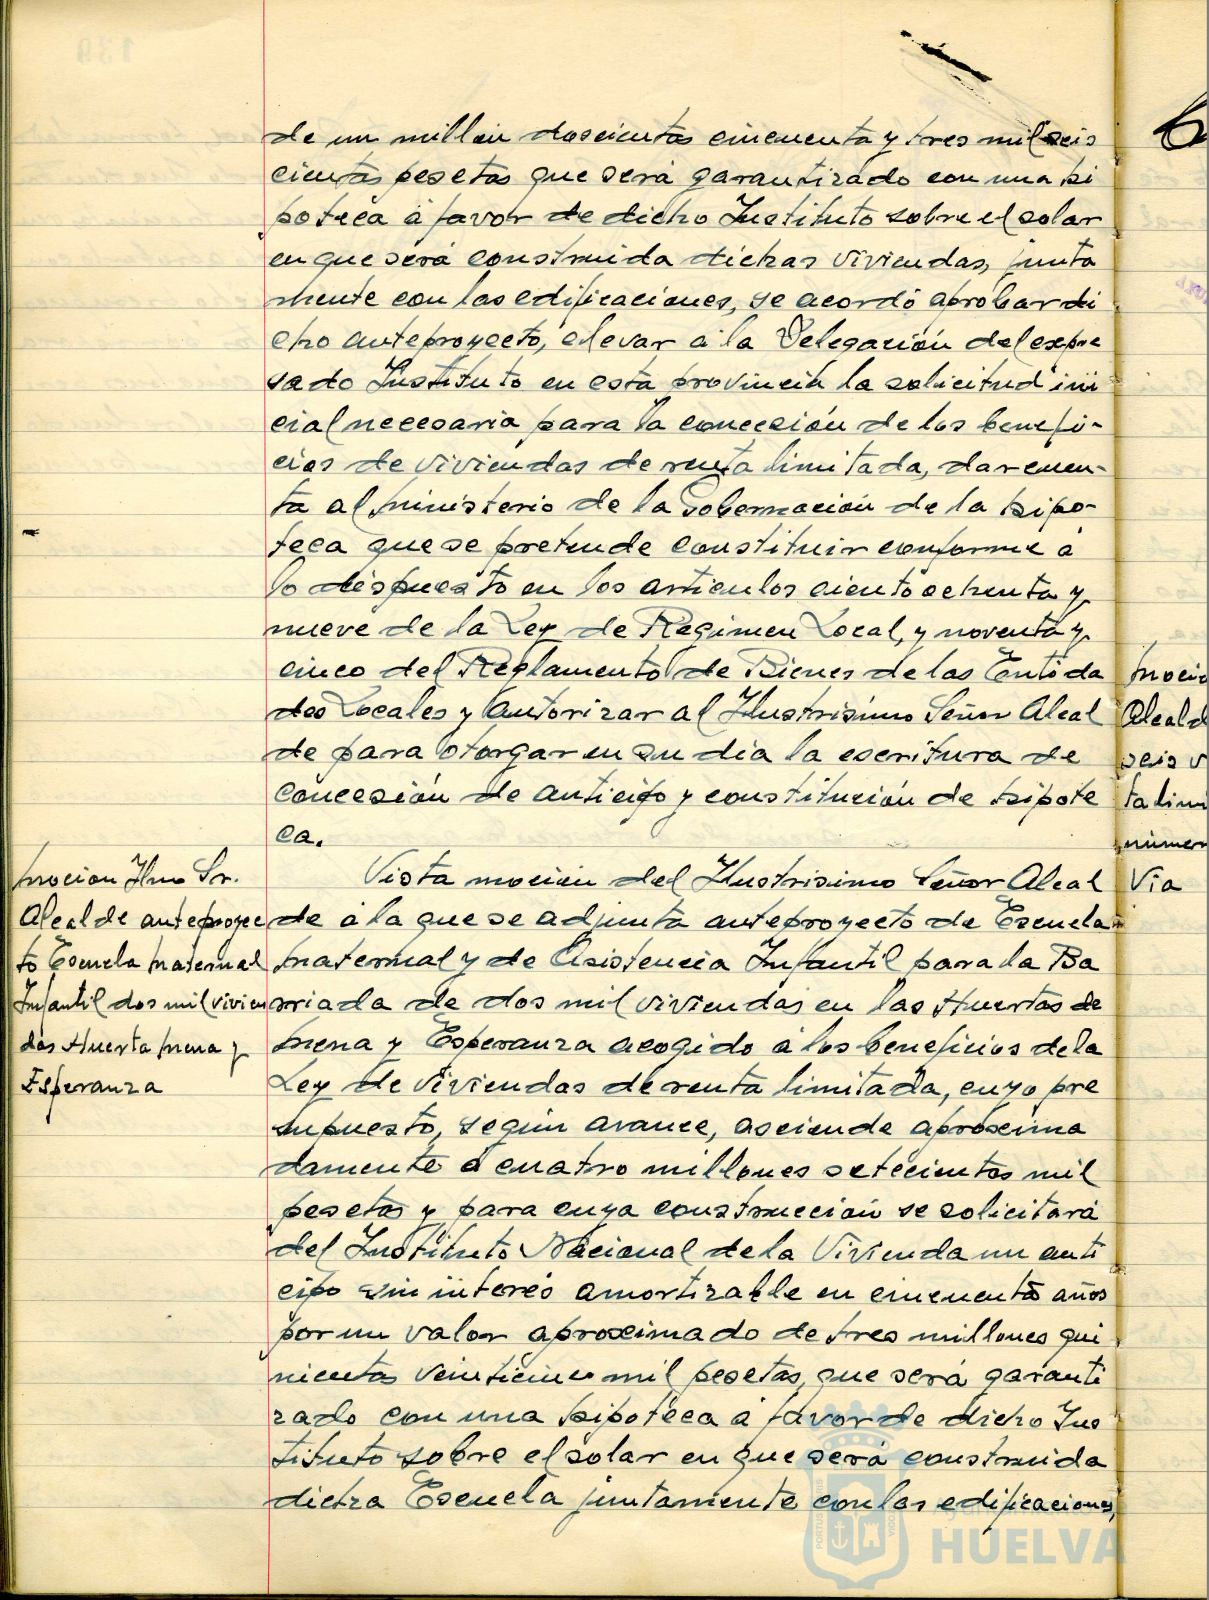 de un millón doscientas cincuenta y tres mil seis
cientas pesetas que será garantizado con una hi
poteca a favor de dicho Instituto sobre el solar
en que será construida dichas viviendas, junta
mente con las edificaciones, se acordó aprobar di
cho anteproyecto, elevar a la Delegación del expre
sado Instituto en esta provincia la solicitud ini
cial necesaria para la concesión de los benefi-
cios de viviendas de renta limitada, dar cuen-
ta al Ministerio de la Gobernación de la hipo-
teca que se pretende constituir conforme a
lo dispuesto en los artículos ciento ochenta y
nueve de la Ley de Régimen Local, y noventa y
cinco del Reglamento de Bienes de las Entida
des Locales y autorizar al Ilustrísimo Señor Alcal
de para otorgar en su día la escritura de
concesión de anticipo y constitución de hipote
ca.
Moción Ilmo Sr.
Alcalde anteproyec
to Escuela Maternal
Infantil dos mil vivien
das Huerta Mena y
Esperanza
Vista moción del Ilustrísimo Señor Alcal
de a la que se adjunta anteproyecto de Escuela
Maternal y de Asistencia Infantil para la Ba
rriada de dos mil viviendas en las Huertas de
Mena y Esperanza acogido a los beneficios de la
Ley de viviendas de renta limitada, cuyo pre
supuesto, según avance, asciende aproxima
damente a cuatro millones setecientas mil
pesetas y para cuya construcción se solicitará
del Instituto Nacional de la Vivienda un anti
cipo sin interés amortizable en cincuenta años
por un valor aproximado de tres millones qui
nientas veinticinco mil pesetas, que será garanti
zado con una hipoteca a favor de dicho Ins
tituto sobre el solar en que será construida
dicha Escuela juntamente con las edificaciones,
Moció
Alcald
seis v
ta limi
númer
Vía
HUELVA